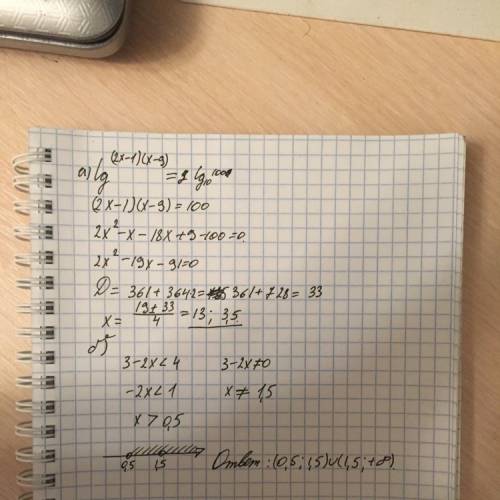 а) lg (2x-1)(x-9) = 2 lg₁₀ 100
(2x-1)(x-9) = 100
2x² - x - 18x + 9 - 100 = 0
2x² - 19x - 91 = 0
D = 361 + 364·2 = 361 + 728 = 33
x = (19 ± 33)/4 = 13; 3,5
б)
3 - 2x < 4 3 - 2x ≠ 0
-2x < 1 x ≠ 1,5
x > 0,5
0,5 1,5 Ответ: (0,5; 1,5)∪(1,5; +∞)